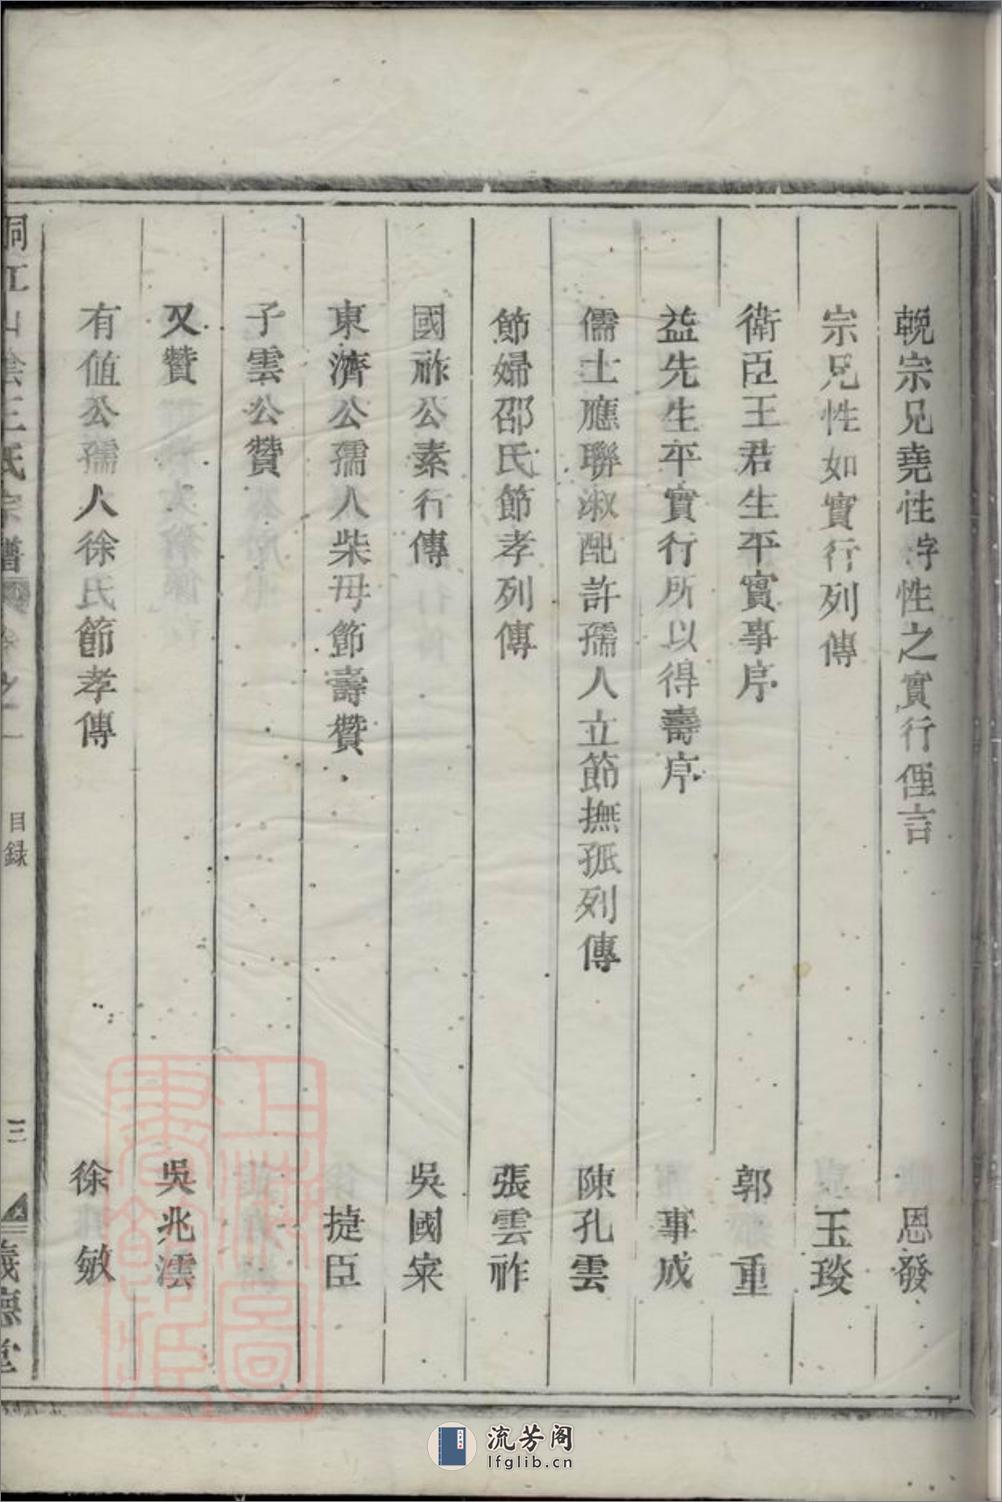 輓宗兄堯性字性之實行俚言 恩發
宗兄性如實行列傳 玉琰
衛臣王君生平實事序 郭重
益先生生平實行所以得壽序 事成
儒士應聯淑配許孺人立節撫孤列傳 陳孔雲
節婦邵氏節孝列傳 張雲祚
國祚公素行傳 吳國寀
東濟公孺人柴母節壽贊 捷臣
子雲公贊
又贊 吳兆澐
有值公孺人徐氏節孝傳 徐敏
桐江山陰王氏宗譜 卷之一 目録 三 義德堂
上海圖書館藏
流芳阁
lfglib.cn